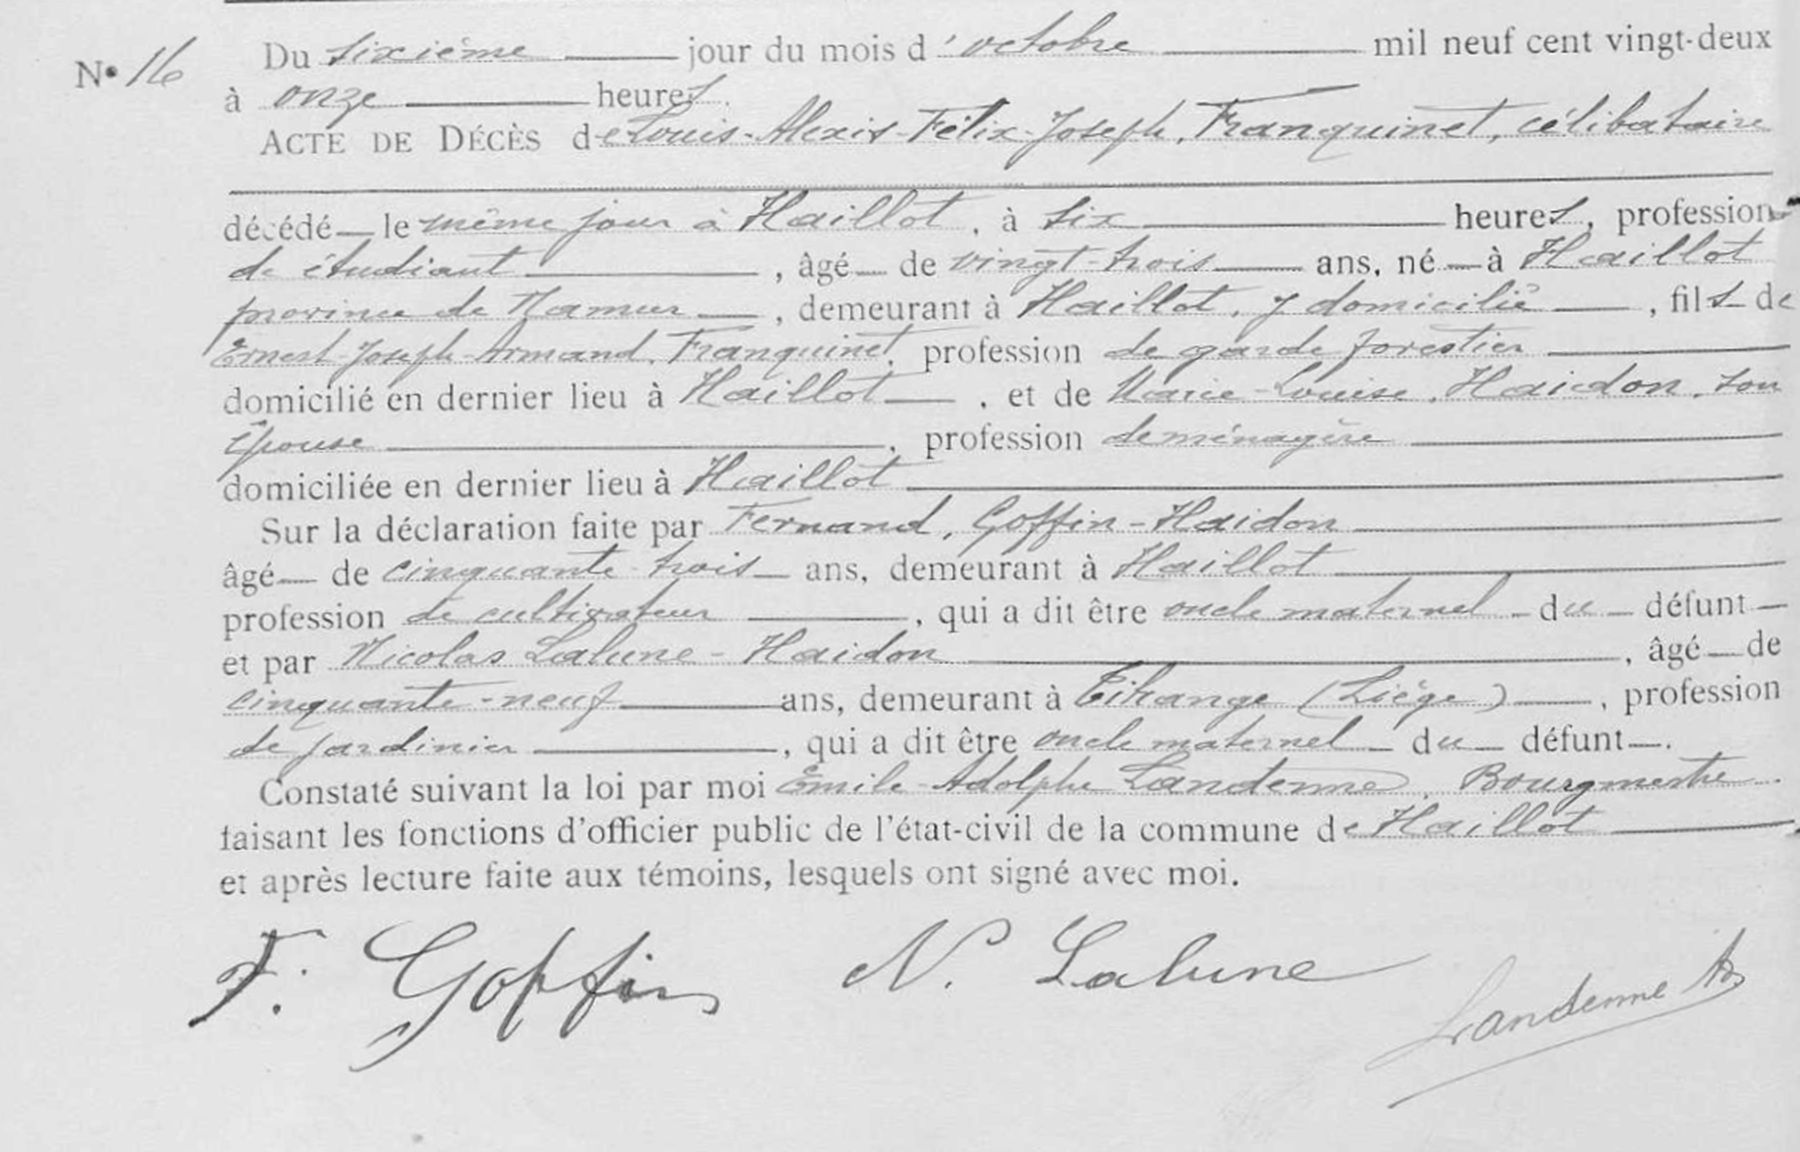 N° 16
Du sixième jour du mois d'octobre mil neuf cent vingt-deux
à onze heures.
ACTE DE DÉCÈS de Louis-Alexis-Félix-Joseph, Franquinet, célibataire
décédé le même jour à Haillot, à six heures, profession
de étudiant, âgé de vingt-trois ans, né à Haillot
province de Namur, demeurant à Haillot, y domicilié, fils de
Ernest-Joseph-Armand, Franquinet, profession de garde forestier
domicilié en dernier lieu à Haillot, et de Marie-Louise, Haidon, son
épouse, profession de ménagère
domiciliée en dernier lieu à Haillot
Sur la déclaration faite par Fernand, Goffin-Haidon
âgé de cinquante-trois ans, demeurant à Haillot
profession de cultivateur, qui a dit être oncle maternel du défunt
et par Nicolas Lalune-Haidon, âgé de
cinquante-neuf ans, demeurant à Tihange (Liège), profession
de jardinier, qui a dit être oncle maternel du défunt.
Constaté suivant la loi par moi Emile-Adolphe Landenne, Bourgmestre
faisant les fonctions d'officier public de l'état-civil de la commune de Haillot
et après lecture faite aux témoins, lesquels ont signé avec moi.
F. Goffin N. Lalune Landenne